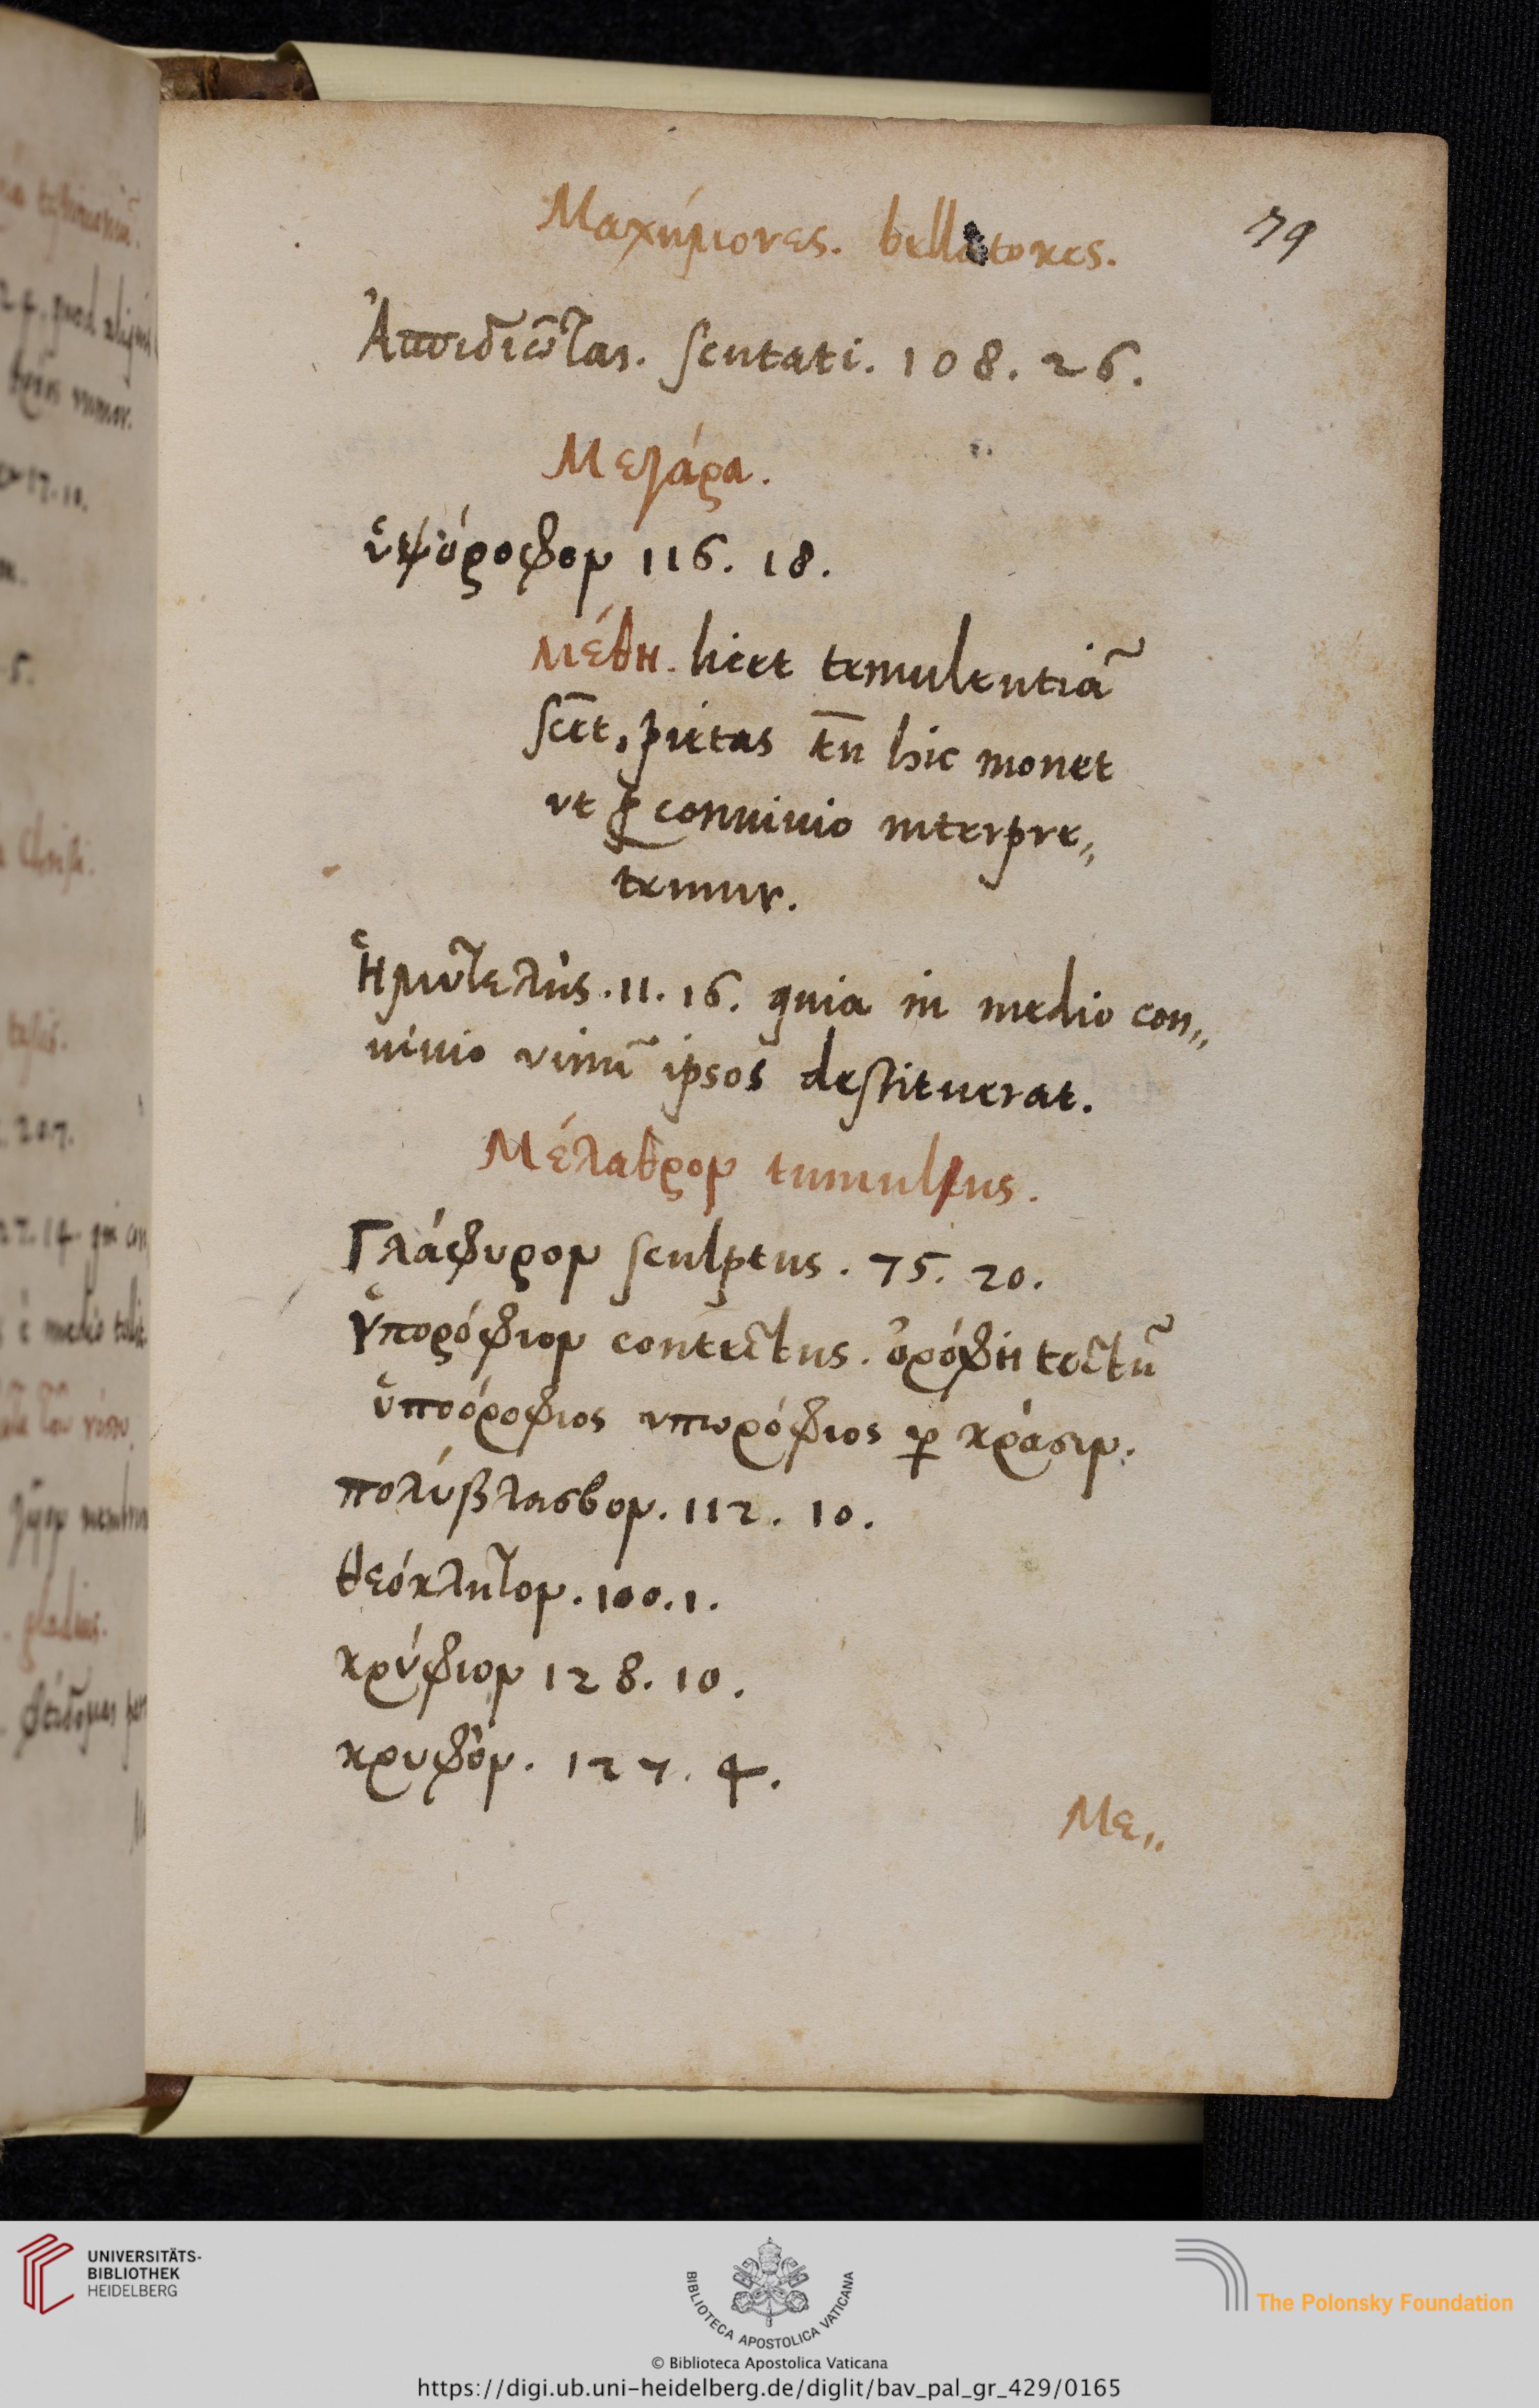 79
Μαχήμονες. bellatores.
Ἀσπιδιῶται. scutati. 108. 26.
Μεγάρα.
ὑψόροφον 116. 18.
Μέθη. licet temulentiã
sc̄et, pietas tn̄ hic monet
ut ꝓ conuiuio interpre„
temur.
Ἡμιτελὴς. 11. 16. quia in medio con„
uiuio vinũ ipsos destituerat.
Μέλαθρον tumultus.
Γλάφυρον sculptus. 75. 20.
Ὑπορόφιον contectus. ὀρόφη tectũ
ὑποόροφιος υπωρόφιος ꝑ κρᾶσιν.
πολύβλαστον. 112. 10.
θεόκλητον. 100. 1.
κρύφιον 128. 10.
κρυφὸν. 127. 4.
Με„
UNIVERSITÄTS-
BIBLIOTHEK
HEIDELBERG
BIBLIOTECA APOSTOLICA VATICANA
The Polonsky Foundation
© Biblioteca Apostolica Vaticana
https://digi.ub.uni-heidelberg.de/diglit/bav_pal_gr_429/0165